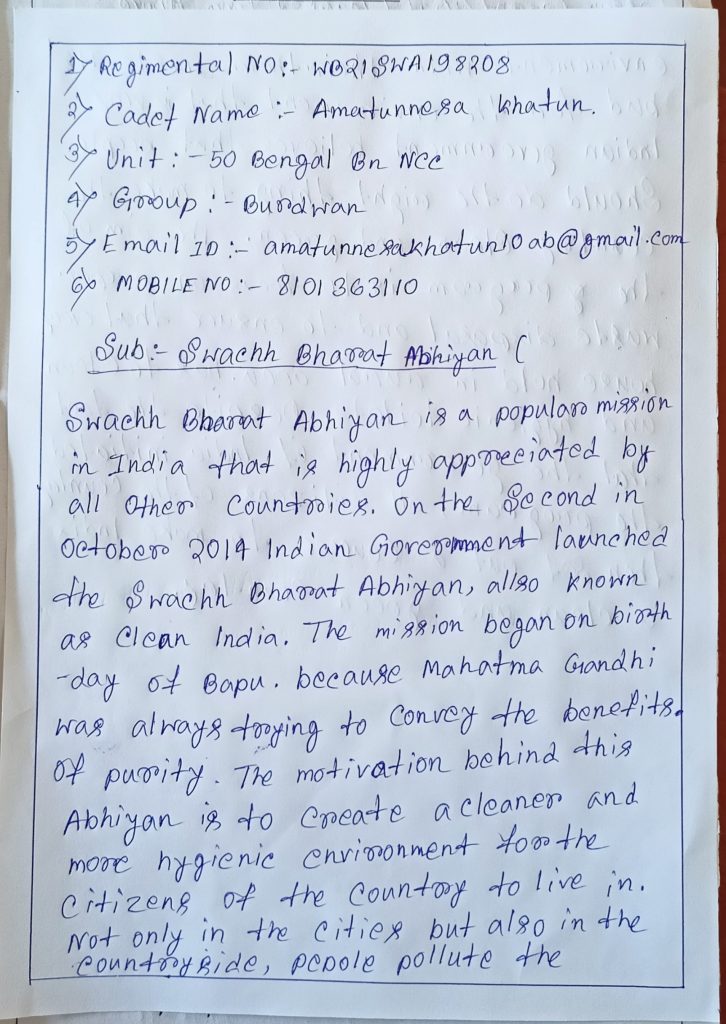 1) Regimental NO:- WB21SWA198208
2) Cadet Name :- Amatunnesa Khatun.
3) Unit :- 50 Bengal Bn NCC
4) Group :- Burdwan
5) Email ID :- amatunnesakhatun10ab@gmail.com
6) MOBILE NO :- 8101363110
Sub:- Swachh Bharat Abhiyan (
Swachh Bharat Abhiyan is a popular mission
in India that is highly appreciated by
all Other Countries. On the Second in
October 2014 Indian Government launched
the Swachh Bharat Abhiyan, allso known
as Clean India. The mission began on birth
-day of Bapu. because Mahatma Gandhi
was always trying to Convey the benefits.
of purity. The motivation behind this
Abhiyan is to Create a cleaner and
more hygienic environment for the
Citizens of the Country to live in.
Not only in the Cities but also in the
Countryside, people pollute the